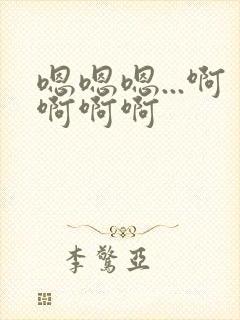 嗯嗯嗯...啊
啊啊啊
李驚亞